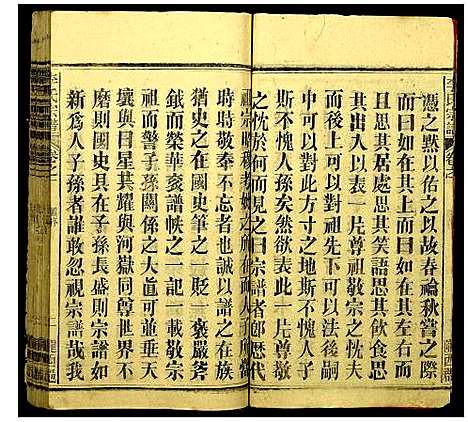 憑之默以佑之以故春禴秋嘗之際
而曰如在其上而曰如在其左右而
且思其居處思其笑語思其飲食思
其出入以表一片尊祖敬宗之心夫
而後上可以對祖先下可以法後嗣
中可以對此方寸之地斯不愧人子
斯不愧人孫矣然欲表此一片尊敬
之忱於何而見之曰宗譜者郎歷代
時時敬奉不忘者也誠以譜之在族
猶史之在國史筆之一貶一褒嚴斧
鉞而榮華袞譜帙之一記一載敬宗
祖而警子孫關係之大直可並垂天
壤與日星其耀與河嶽同尊世界不
磨則國史長具在子孫長盛則宗譜如
新為人子孫者誰敢忽視宗譜哉我
李氏宗譜